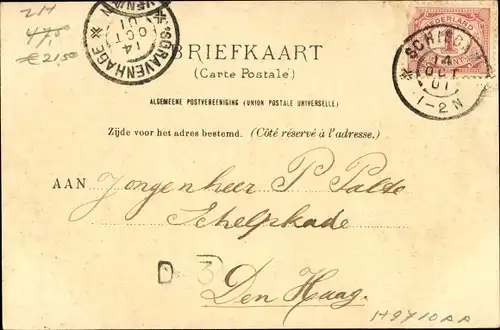 2H
47,5
€ 21,50
'SGRAVENHAGE
14
OCT
01
BRIEFKAART
(Carte Postale)
ALGEMEENE POSTVEREENIGING (UNION POSTALE UNIVERSELLE)
Zijde voor het adres bestemd. (Côté réservé à l'adresse.)
NEDERLAND
SCHIEDAM
14
OCT
01
1-2N
AAN Jongenheer P
Schelpkade
D 3
Den Haag.
H9710AA